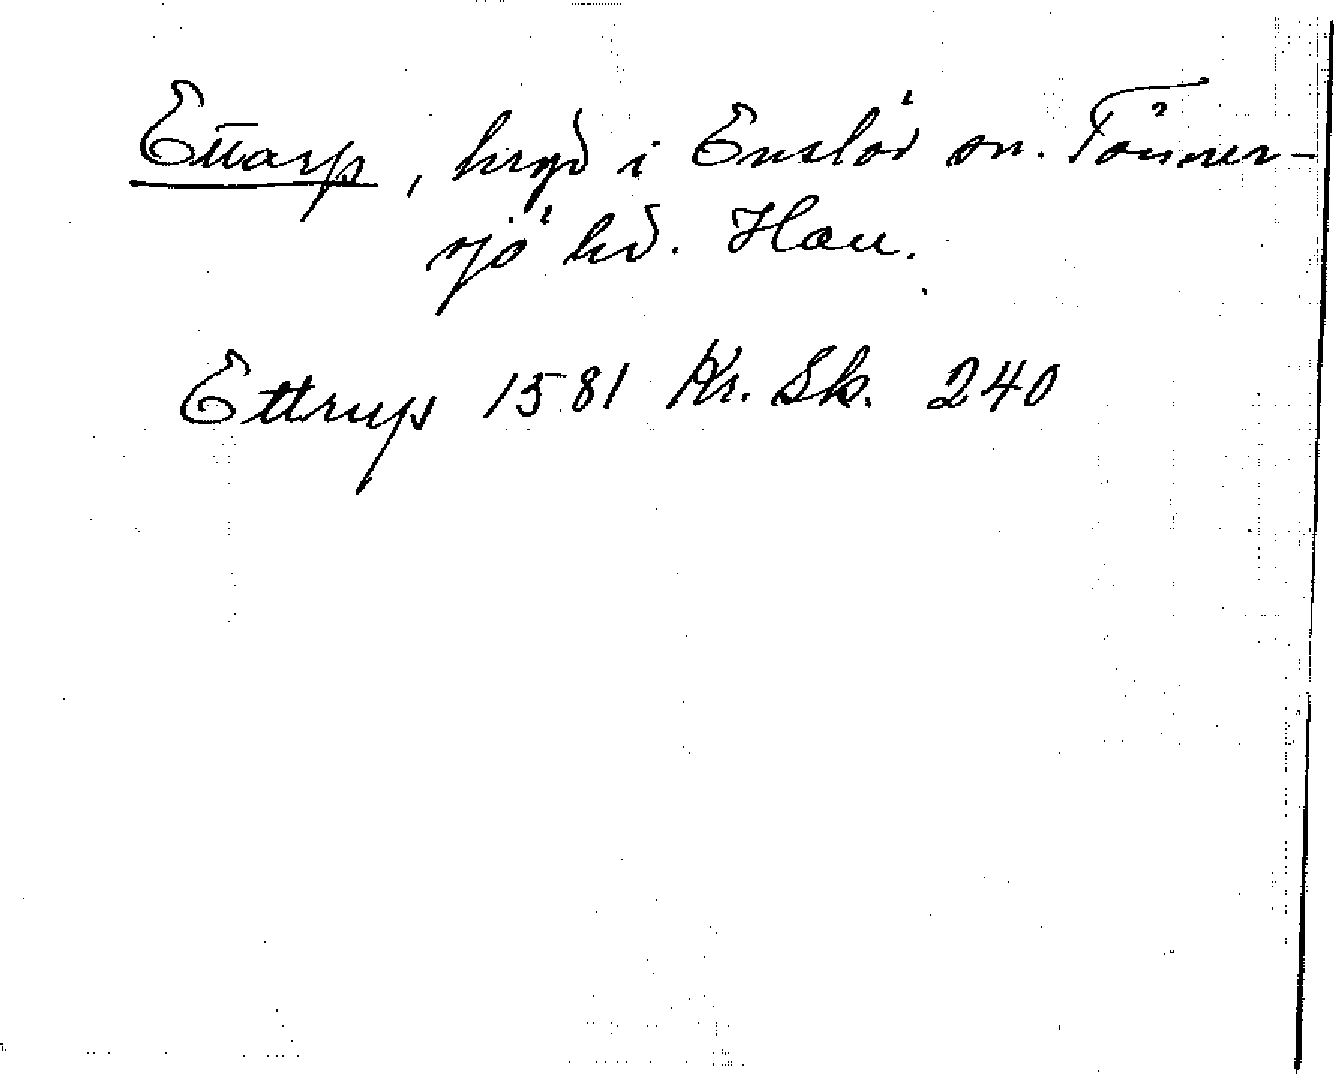 Ettarp, hrgd i Enslöv sn. Tönner-
sjö hd. Hall.
Ettrup 1581 Kr. Sk. 240